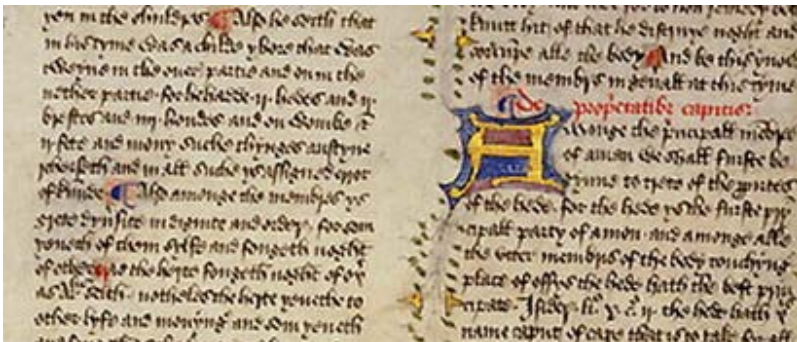 yen in the childes Also he seith that
in his tyme was a childe ybore that was
tweyne in the over partie and on in the
nether partie for he hadde ij hedes and ij
brestes and iiij hondes and on wombe &
ij fete and mony suche thynges austyne
reherseth and in all suche ys assigned
of kinde Also amonge the membrys ys
grete dyversite in dignite and ordre for som
yeveth of them sylfe and fongeth noght
of other as the herte fongeth noght of oþ
as Ar seith notheles the herte yeveth to
other lyfe and mevyng and som yeveth
knitt hit of that he distruye noght and
corrupe alle the body And be this ynow
of the membris in generall at this tyme
De proprietatibus capitis
Amonge the principall membres
of a man we shall furste be
gynne to trete of the parties
of the hede for the hede ys the furste pryn
cipall party of a mon and amonge alle
the utter membris of the body touchyng
place of offys the hede hath the best prin
cipate Isider the hede hath þe
name caput of cape that is to take for all